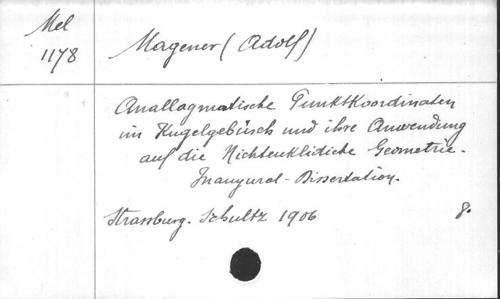 Mel
1178
Magener (Adolf)
Anallagmatische Punktkoordinaten
im Kugelgebüsch und ihre Anwendung
auf die Nichteuklidiche Geometrie.
Inaugural-Dissertation.
Strassburg. Schultz 1906 8.